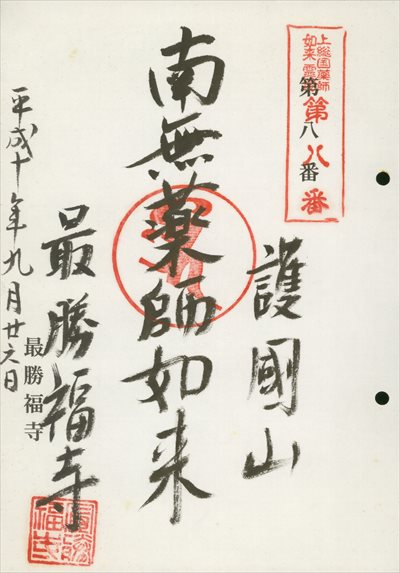 上総国薬師
如来霊
第八番
第八番
護國山
南無薬師如来
最勝福寺
最勝福寺
平成十年九月廿六日
最勝
福寺